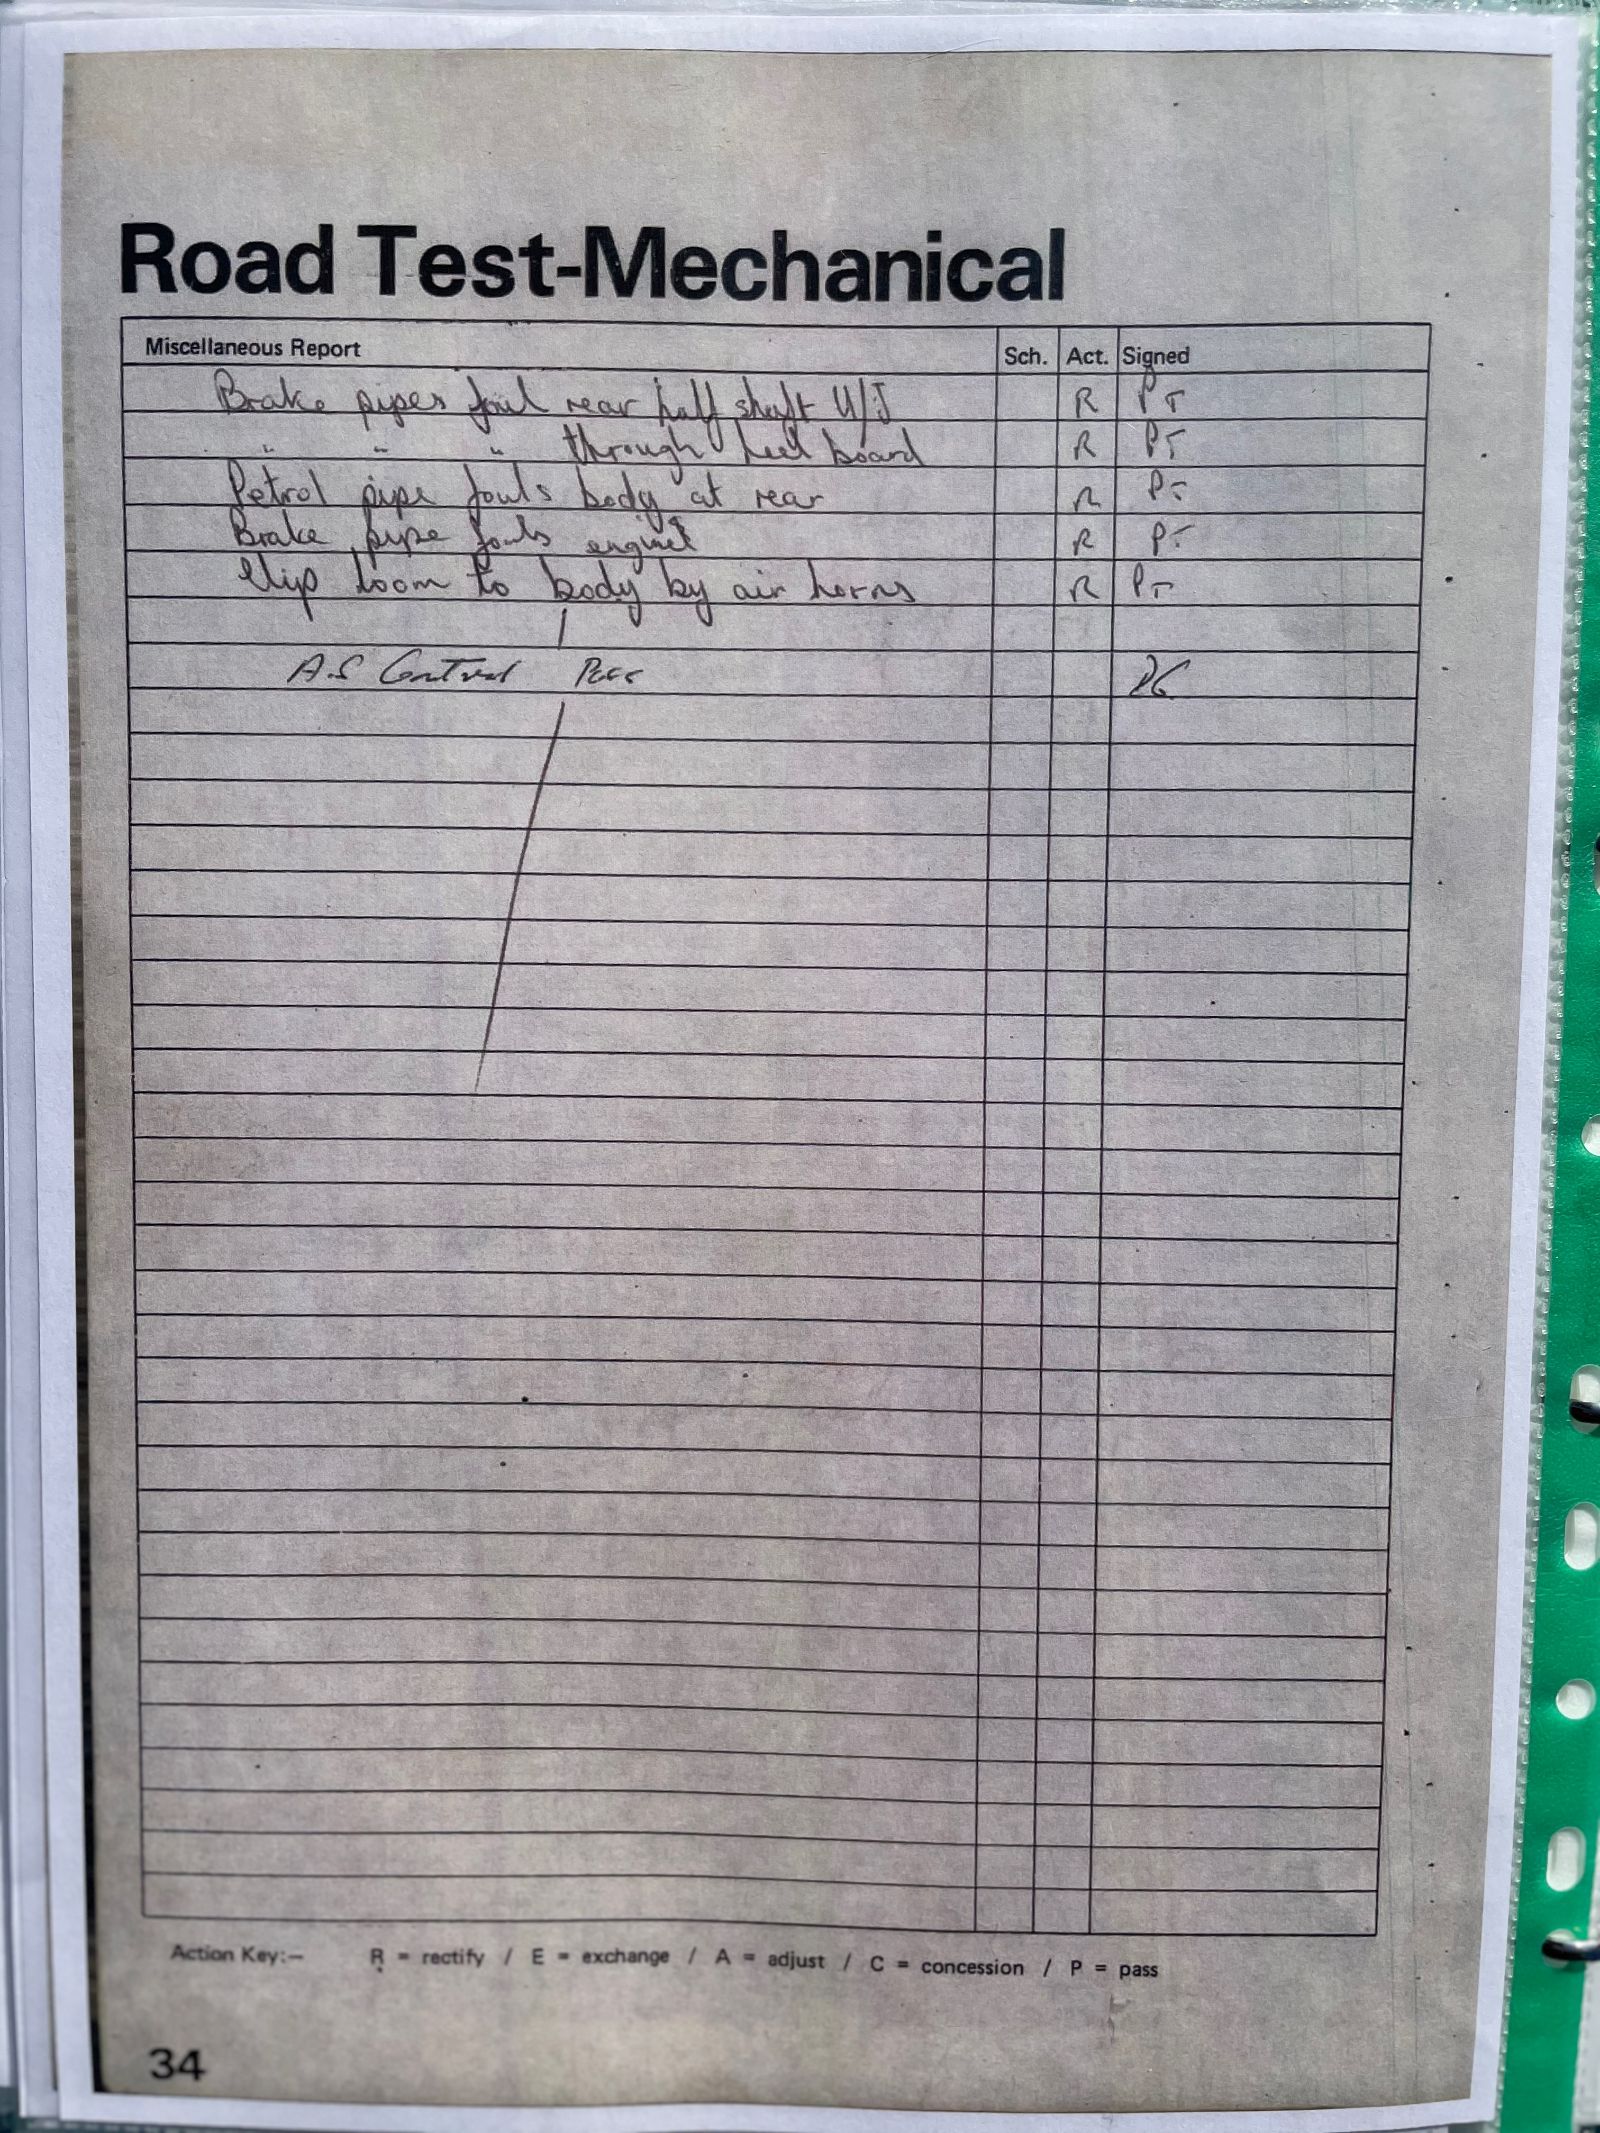 Road Test-Mechanical
Miscellaneous Report Sch. Act. Signed
Brake pipes foul rear half shaft U/J R PT
" " " through heel board R PT
Petrol pipe fouls body at rear R PT
Brake pipe fouls engine R PT
Clip loom to body by air horns R PT
A.S Control
Action Key:– R = rectify / E = exchange / A = adjust / C = concession / P = pass
34